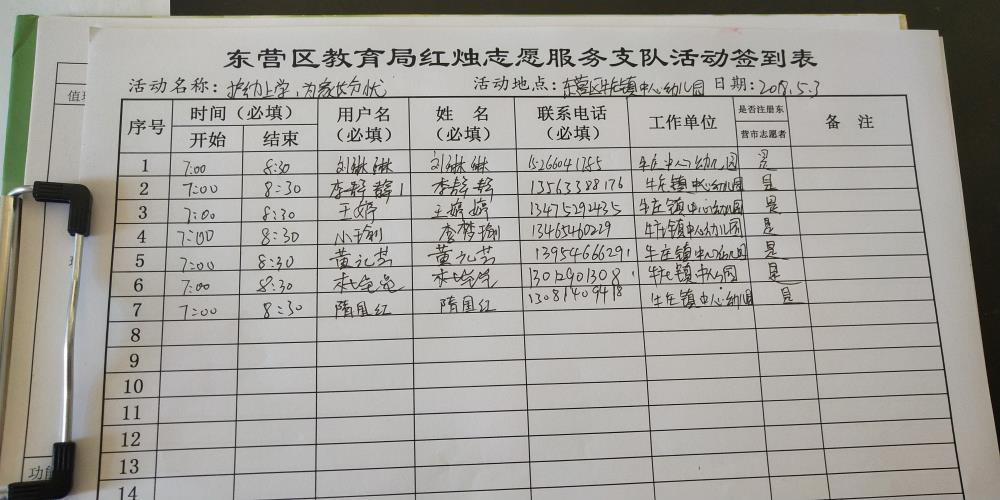 东营区教育局红烛志愿服务支队活动签到表
活动名称：护幼上学,为家长分忧 活动地点：东营区牛庄镇中心幼儿园 日期：2018.5.3
序号 时间（必填） 用户名（必填） 姓名（必填） 联系电话（必填） 工作单位 是否注册东营市志愿者 备注
开始 结束
1 7:00 8:30 刘琳琳 刘琳琳 15266041785 牛庄中心幼儿园 是
2 7:00 8:30 李静静1 李静静 13563388176 牛庄镇中心幼儿园 是
3 7:00 8:30 王婷 王婷婷 13475292435 牛庄镇中心幼儿园 是
4 7:00 8:30 小瑜 李梦瑜 13465460229 牛庄镇中心幼儿园 是
5 7:00 8:30 黄元芸 黄元芸 13954666291 牛庄镇中心幼儿园 是
6 7:00 8:30 13012901308 牛庄镇中心幼园 是
7 7:00 8:30 隋国红 隋国红 13081409418 牛庄镇中心幼儿园 是
8
9
10
11
12
13
14